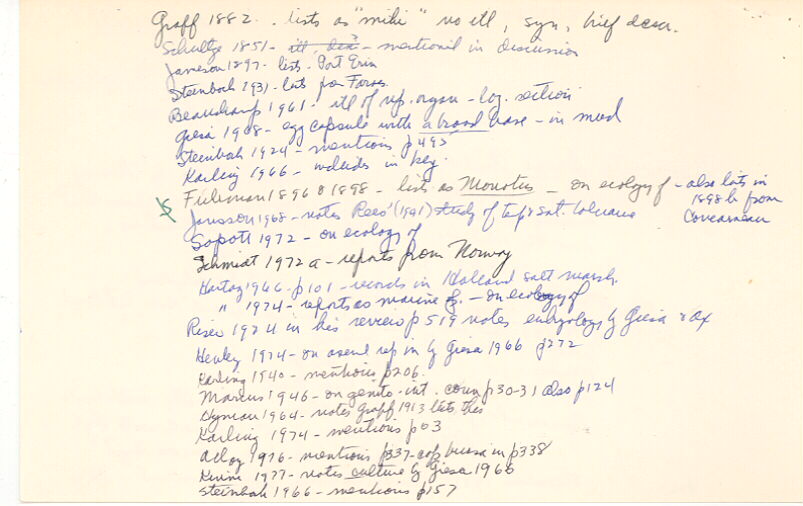 Graff 1882. lists as "milii" no ill, syn, brief descr.
Schultze 1851 - ill, dia - mentioned in discussion
Jameson 1897 - lists - Port Erin
Steinbock 1931 - lists from Faroes
Beauchamp 1961 - ill of rep. organ - log. section
Giesa 1968 - egg capsule with a broad base - in mud
Steinbock 1924 - mentions p493
Karling 1966 - includes in key.
Fuhrman 1896 & 1898 - lists as Monotus - on ecology of - also lists in 1898b from Concarneau
Jansson 1968 - notes Rees' (1941) study of temp & sal. tolerance
Sopott 1972 - on ecology of
Schmidt 1972a - reports from Norway
Hartog 1966 - p101 - records in Holland salt marsh.
" 1974 - reports as marine sp. - on ecology of
Riser 1974 in his review p519 notes embryology by Giesa & Ax
Henley 1974 - on asexul rep in by Giesa 1966 p272
Karling 1940 - mentions p206.
Marcus 1946 - on genito-int. conn p30-31 also p124
Hyman 1964 - notes Graff 1913 lists this
Karling 1974 - mentions p03
1976 - mentions p337 - cop bursa in p338
1977 - notes culture by Giesa 1966
Steinbock 1966 - mentions p157